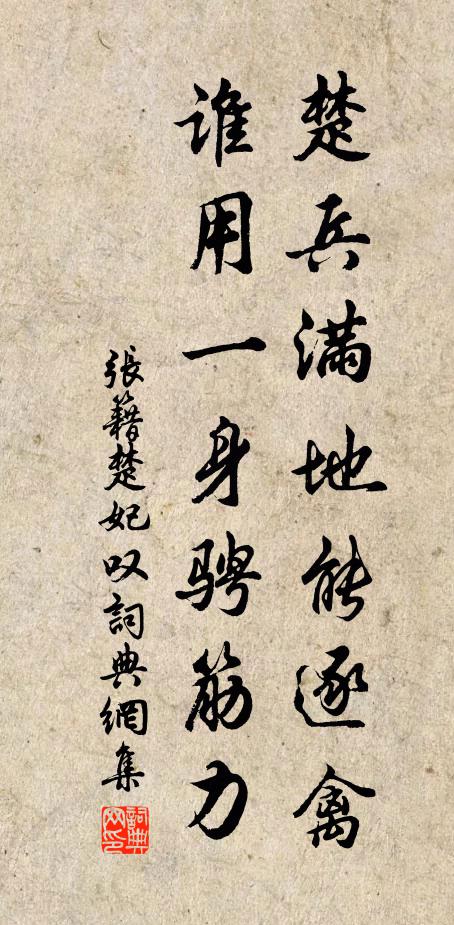 楚兵滿地能逐禽
誰用一身騁筋力
張籍楚妃叹詞典網集
詞典網印